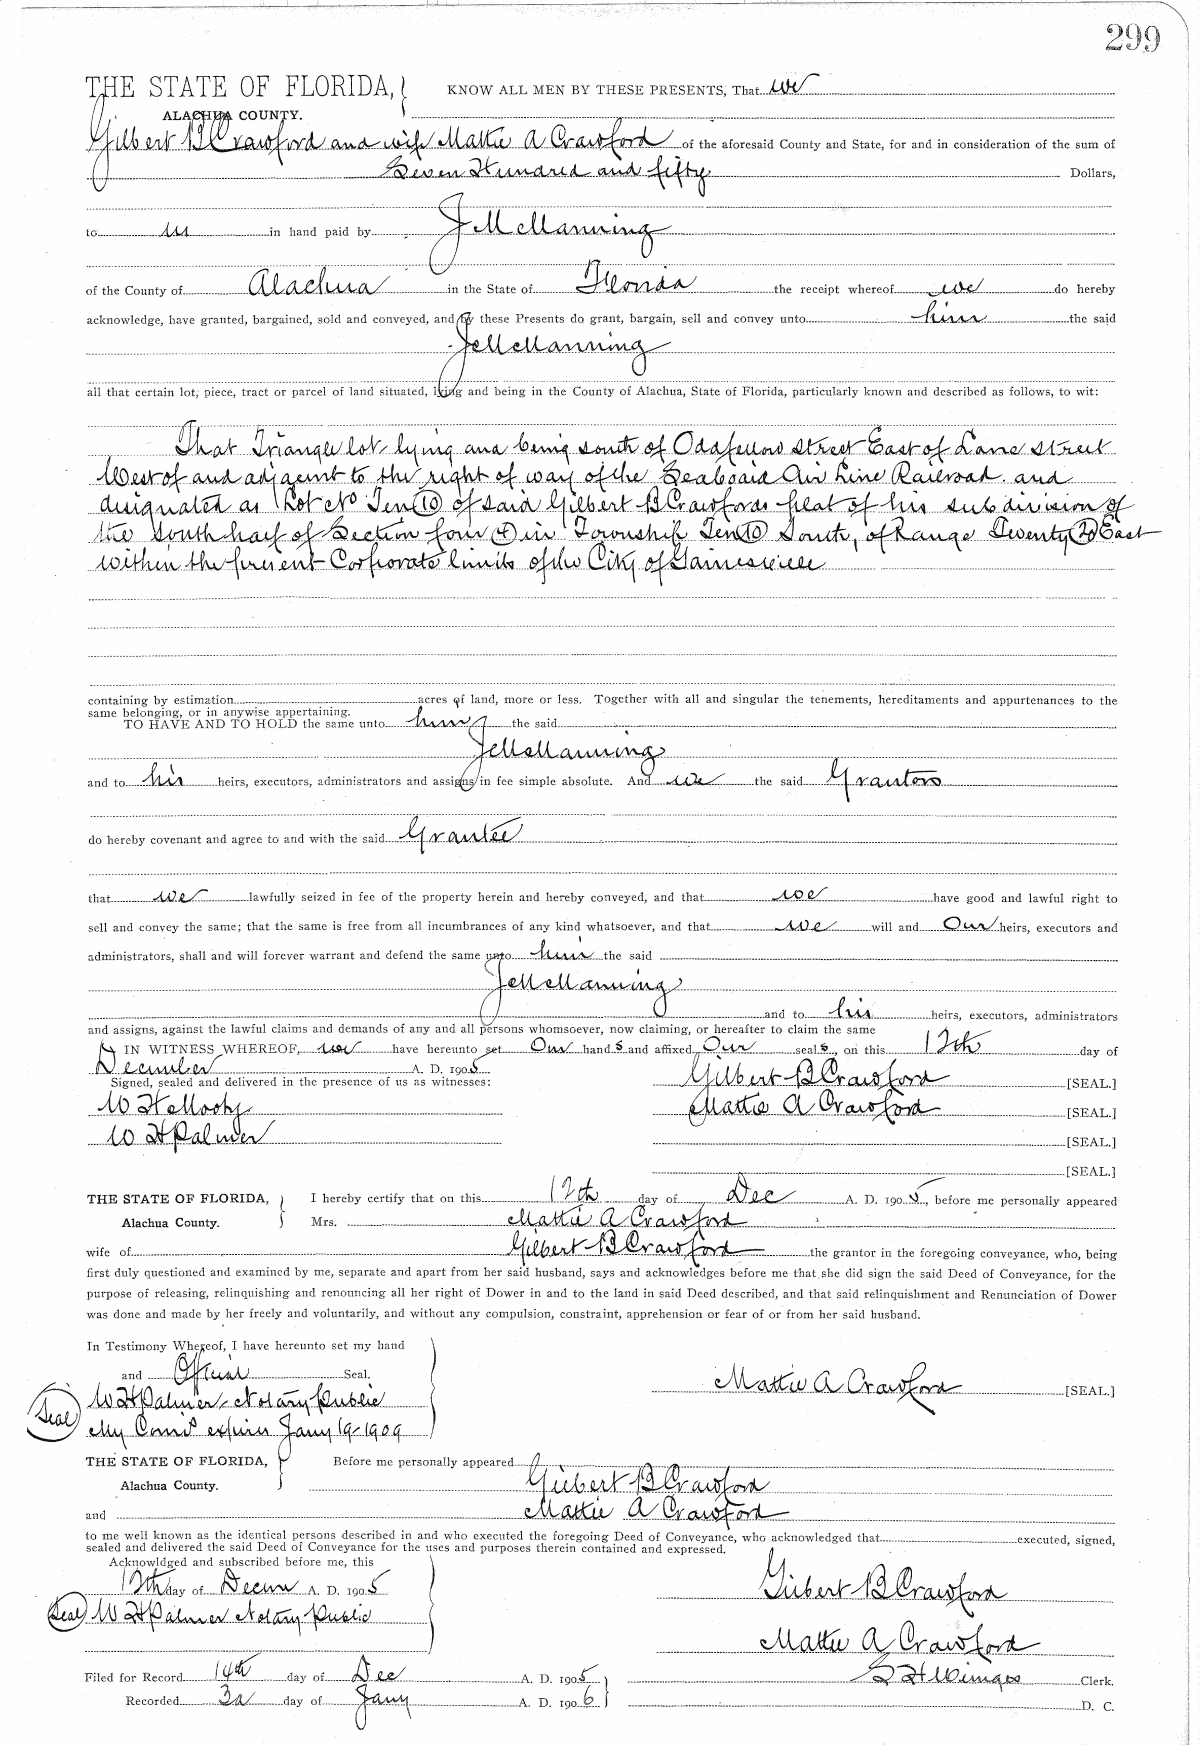 299
THE STATE OF FLORIDA, KNOW ALL MEN BY THESE PRESENTS, That we
ALACHUA COUNTY.
Gilbert B Crawford and wife Mattie A Crawford of the aforesaid County and State, for and in consideration of the sum of
Seven Hundred and fifty Dollars,
to us in hand paid by J M Manning
of the County of Alachua in the State of Florida the receipt whereof we do hereby
acknowledge, have granted, bargained, sold and conveyed, and by these Presents do grant, bargain, sell and convey unto him the said
J M Manning
all that certain lot, piece, tract or parcel of land situated, lying and being in the County of Alachua, State of Florida, particularly known and described as follows, to wit:
That Triangle lot lying and being south of Oddfellow Street East of Lane Street
West of and adjacent to the right of way of the Seaboard Air Line Railroad and
designated as Lot No Ten (10) of said Gilbert B Crawfords plat of his subdivision of
the South half of Section four (4) in Township Ten (10) South, of Range Twenty (20) East
within the present Corporate limits of the City of Gainesville
containing by estimation acres of land, more or less. Together with all and singular the tenements, hereditaments and appurtenances to the
same belonging, or in anywise appertaining.
TO HAVE AND TO HOLD the same unto him the said
J M Manning
and to his heirs, executors, administrators and assigns in fee simple absolute. And we the said Grantors
do hereby covenant and agree to and with the said Grantee
that we lawfully seized in fee of the property herein and hereby conveyed, and that we have good and lawful right to
sell and convey the same; that the same is free from all incumbrances of any kind whatsoever, and that we will and Our heirs, executors and
administrators, shall and will forever warrant and defend the same unto him the said
J M Manning
and to his heirs, executors, administrators
and assigns, against the lawful claims and demands of any and all persons whomsoever, now claiming, or hereafter to claim the same
IN WITNESS WHEREOF, we have hereunto set Our hands and affixed Our seals, on this 12th day of
December A. D. 1905
Signed, sealed and delivered in the presence of us as witnesses: Gilbert B Crawford [SEAL.]
W H Palmer Mattie A Crawford [SEAL.]
[SEAL.]
[SEAL.]
THE STATE OF FLORIDA, I hereby certify that on this 12th day of Dec A. D. 1905, before me personally appeared
Alachua County. Mrs. Mattie A Crawford
wife of Gilbert B Crawford the grantor in the foregoing conveyance, who, being
first duly questioned and examined by me, separate and apart from her said husband, says and acknowledges before me that she did sign the said Deed of Conveyance, for the
purpose of releasing, relinquishing and renouncing all her right of Dower in and to the land in said Deed described, and that said relinquishment and Renunciation of Dower
was done and made by her freely and voluntarily, and without any compulsion, constraint, apprehension or fear of or from her said husband.
In Testimony Whereof, I have hereunto set my hand
and Official Seal. Mattie A Crawford [SEAL.]
Seal W H Palmer, Notary Public
My Comis expires Jany 19-1909
THE STATE OF FLORIDA, Before me personally appeared
Alachua County. Gilbert B Crawford
and Mattie A Crawford
to me well known as the identical persons described in and who executed the foregoing Deed of Conveyance, who acknowledged that executed, signed,
sealed and delivered the said Deed of Conveyance for the uses and purposes therein contained and expressed.
Acknowldged and subscribed before me, this
12th day of Decem A. D. 1905 Gilbert B Crawford
Seal W H Palmer Notary Public
Mattie A Crawford
Filed for Record 14th day of Dec A. D. 1905 Clerk.
Recorded 3d day of Jany A. D. 1906 D. C.